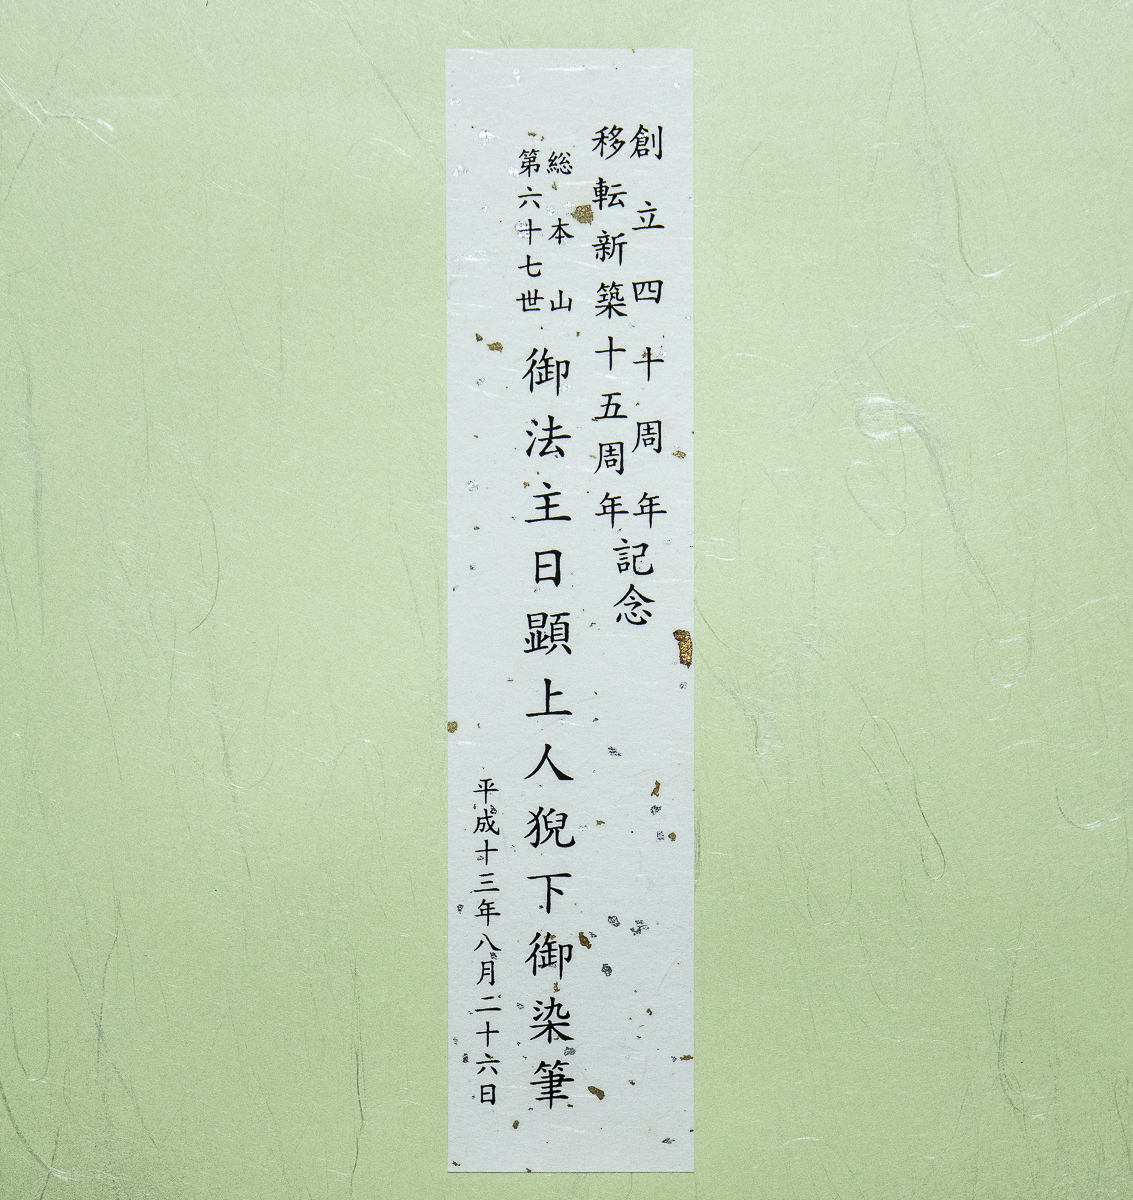 創立四十周年
移転新築十五周年
記念
総本山
第六十七世
御法主日顕上人猊下御染筆
平成十三年八月二十六日